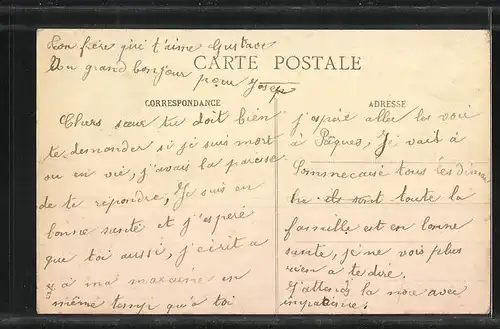 Ton frère qui t'aime Gustave
Un grand bonjour
pour Josep
CARTE POSTALE
CORRESPONDANCE
Chers sœur tu doit bien
te demander si je suis mort
ou en vie, j'avais la parese
de te répondre, Je suis en
bonne santé et j'esperé
que toi aussi, j'écrit a
a ma marraine en
même temp qu'a toi
ADRESSE
j'esperé aller les voir
à Pâques, Je vait à
Sommecaise tous les diman
che ils sont toute la
famille est en bonne
santé, je ne vois plus
rien a te dire.
J'attends la noce avec
impatience.